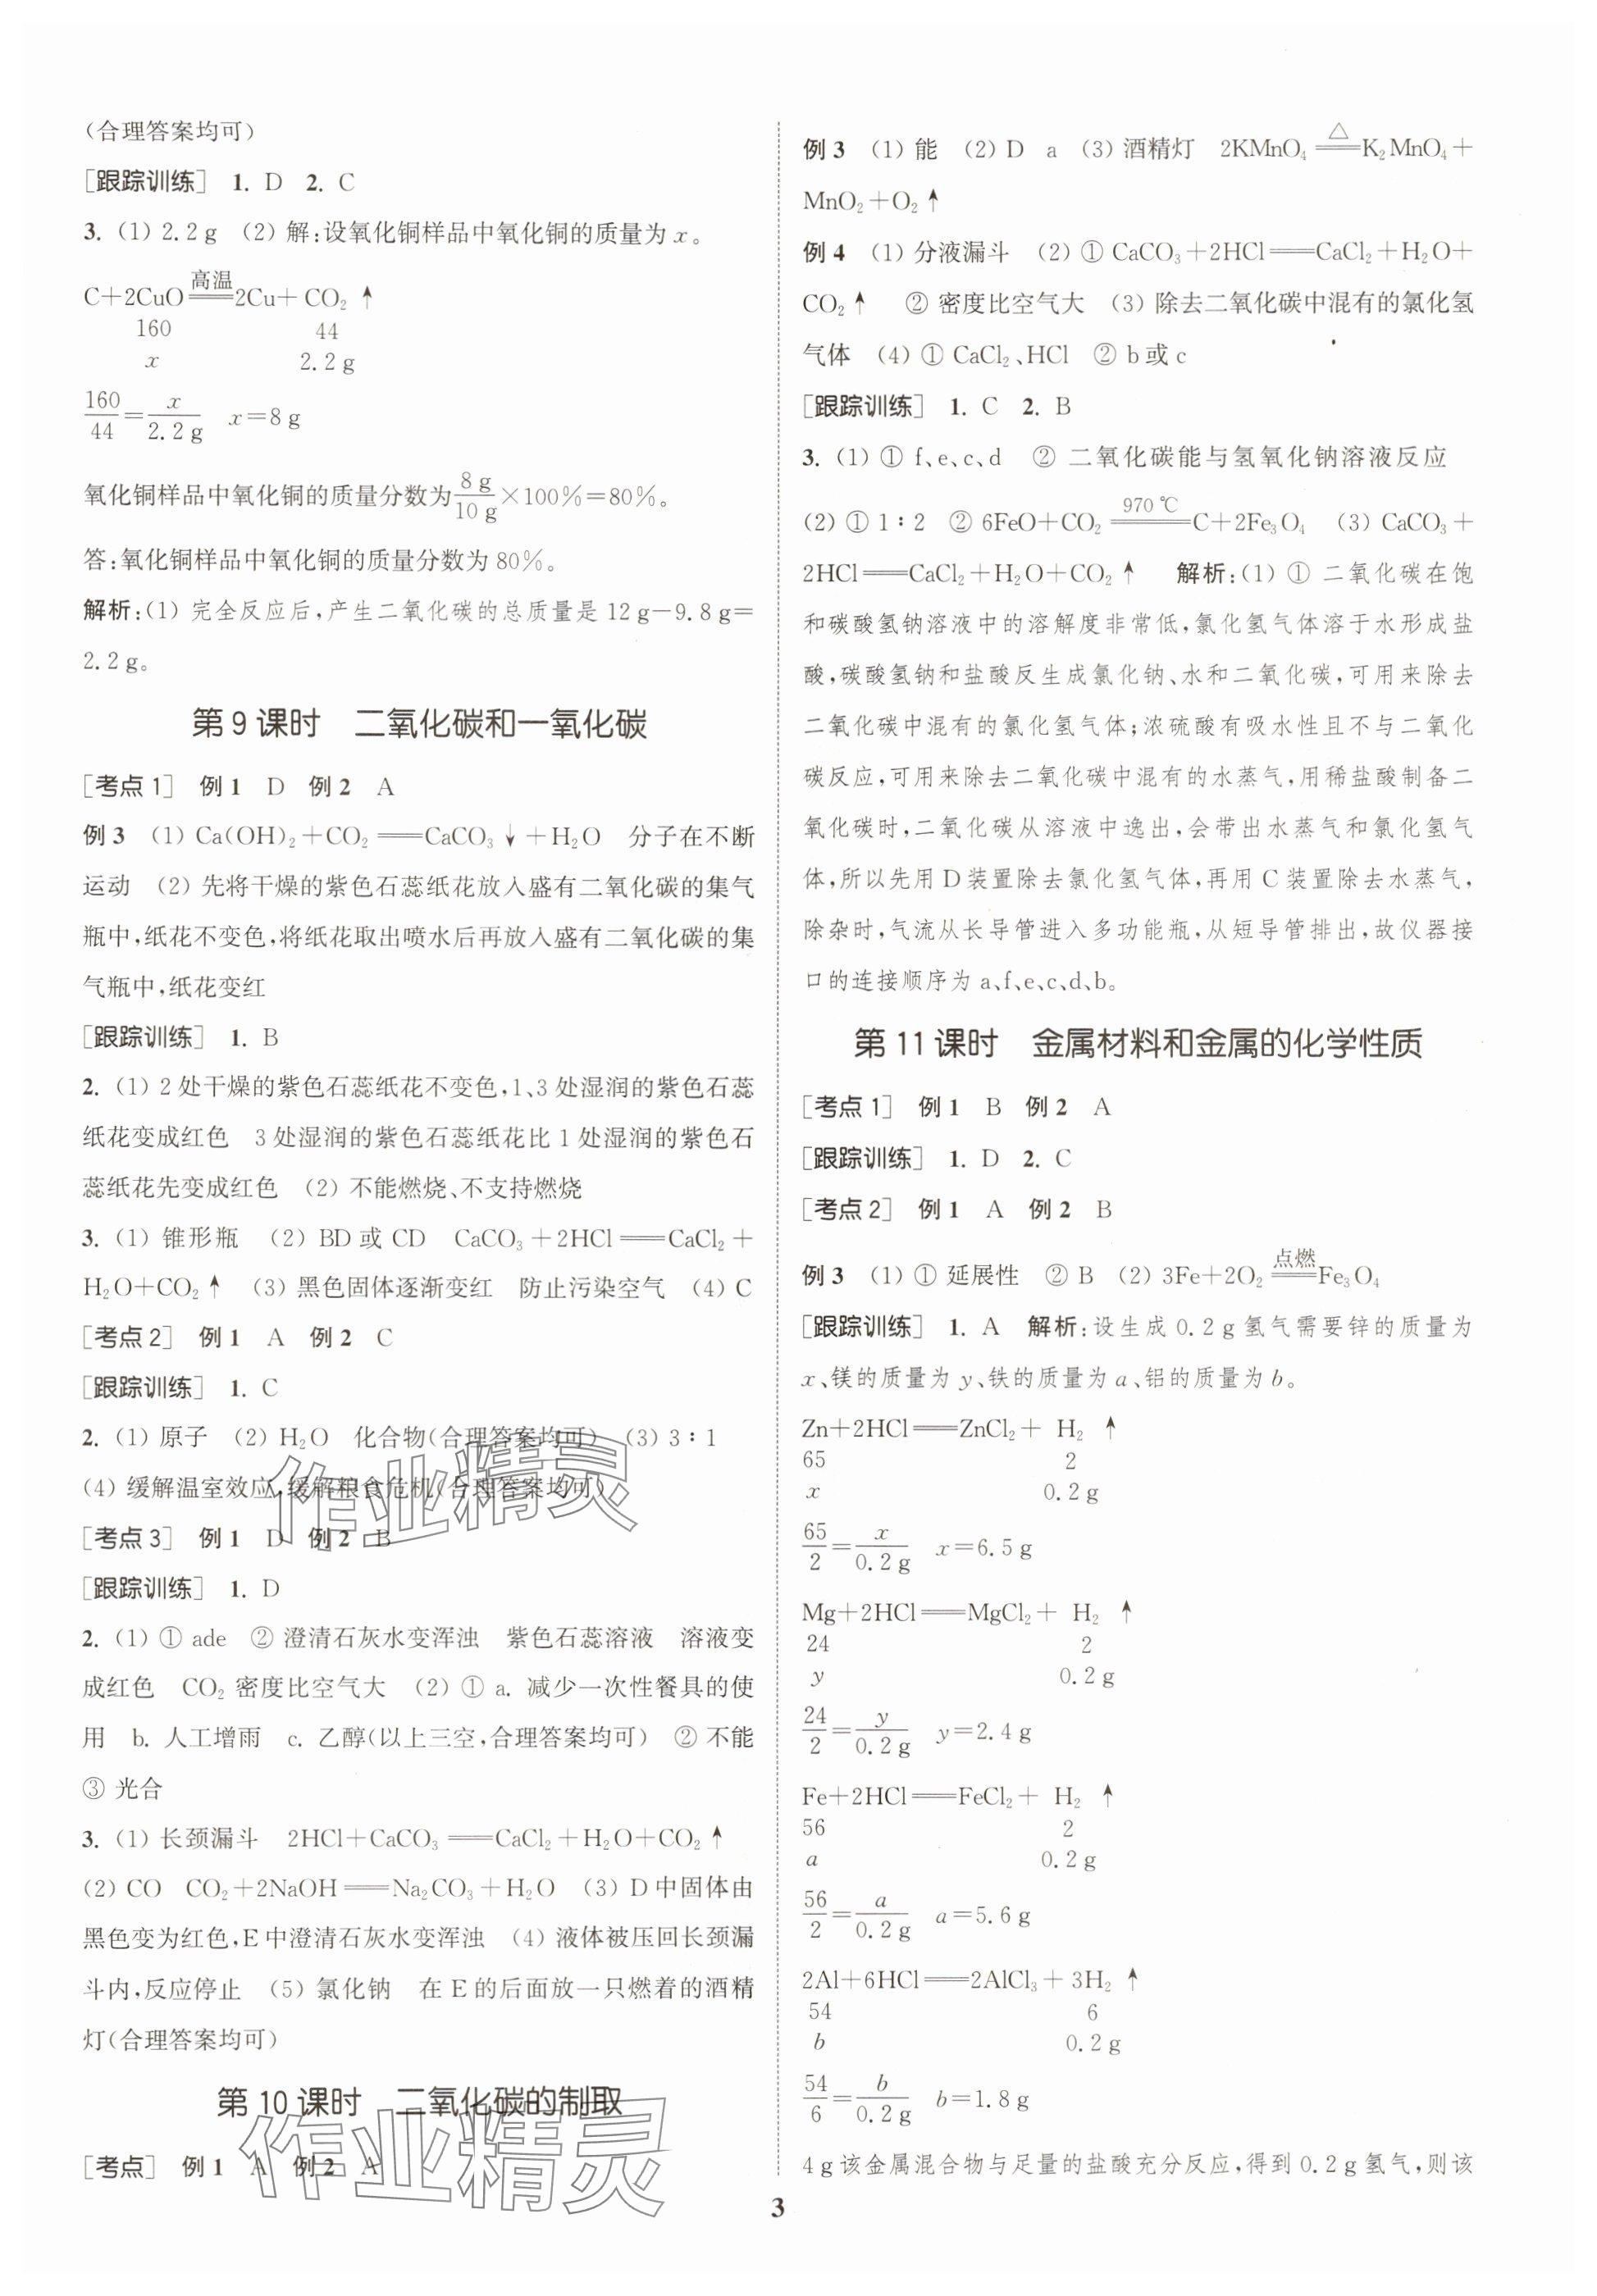 (合理答案均可)
[跟踪训练] 1. D 2. C
3. (1) 2.2 g (2) 解:设氧化铜样品中氧化铜的质量为 x。
高温
C+2CuO══2Cu+ CO₂ ↑
160 44
x 2.2 g
160/44=x/2.2 g x=8 g
氧化铜样品中氧化铜的质量分数为8 g/10 g×100%=80%。
答:氧化铜样品中氧化铜的质量分数为 80%。
解析:(1) 完全反应后,产生二氧化碳的总质量是 12 g-9.8 g=
2.2 g。
第 9 课时 二氧化碳和一氧化碳
[考点 1] 例 1 D 例 2 A
例 3 (1) Ca(OH)₂+CO₂══CaCO₃↓+H₂O 分子在不断
运动 (2) 先将干燥的紫色石蕊纸花放入盛有二氧化碳的集气
瓶中,纸花不变色,将纸花取出喷水后再放入盛有二氧化碳的集
气瓶中,纸花变红
[跟踪训练] 1. B
2. (1) 2 处干燥的紫色石蕊纸花不变色,1、3 处湿润的紫色石蕊
纸花变成红色 3 处湿润的紫色石蕊纸花比 1 处湿润的紫色石
蕊纸花先变成红色 (2) 不能燃烧、不支持燃烧
3. (1) 锥形瓶 (2) BD 或 CD CaCO₃+2HCl══CaCl₂+
H₂O+CO₂↑ (3) 黑色固体逐渐变红 防止污染空气 (4) C
[考点 2] 例 1 A 例 2 C
[跟踪训练] 1. C
2. (1) 原子 (2) H₂O 化合物(合理答案均可) (3) 3∶1
(4) 缓解温室效应,缓解粮食危机(合理答案均可)
[考点 3] 例 1 D 例 2 B
[跟踪训练] 1. D
2. (1) ① ade ② 澄清石灰水变浑浊 紫色石蕊溶液 溶液变
成红色 CO₂ 密度比空气大 (2) ① a. 减少一次性餐具的使
用 b. 人工增雨 c. 乙醇(以上三空,合理答案均可) ② 不能
③ 光合
3. (1) 长颈漏斗 2HCl+CaCO₃══CaCl₂+H₂O+CO₂↑
(2) CO CO₂+2NaOH══Na₂CO₃+H₂O (3) D 中固体由
黑色变为红色,E 中澄清石灰水变浑浊 (4) 液体被压回长颈漏
斗内,反应停止 (5) 氯化钠 在 E 的后面放一只燃着的酒精
灯(合理答案均可)
第 10 课时 二氧化碳的制取
[考点] 例 1 A 例 2 A
例 3 (1) 能 (2) D a (3) 酒精灯 2KMnO₄ △══K₂MnO₄+
MnO₂+O₂↑
例 4 (1) 分液漏斗 (2) ① CaCO₃+2HCl══CaCl₂+H₂O+
CO₂↑ ② 密度比空气大 (3) 除去二氧化碳中混有的氯化氢
气体 (4) ① CaCl₂、HCl ② b 或 c
[跟踪训练] 1. C 2. B
3. (1) ① f、e、c、d ② 二氧化碳能与氢氧化钠溶液反应
(2) ① 1∶2 ② 6FeO+CO₂ 970 ℃══C+2Fe₃O₄ (3) CaCO₃+
2HCl══CaCl₂+H₂O+CO₂↑ 解析:(1) ① 二氧化碳在饱
和碳酸氢钠溶液中的溶解度非常低,氯化氢气体溶于水形成盐
酸,碳酸氢钠和盐酸反生成氯化钠、水和二氧化碳,可用来除去
二氧化碳中混有的氯化氢气体;浓硫酸有吸水性且不与二氧化
碳反应,可用来除去二氧化碳中混有的水蒸气,用稀盐酸制备二
氧化碳时,二氧化碳从溶液中逸出,会带出水蒸气和氯化氢气
体,所以先用 D 装置除去氯化氢气体,再用 C 装置除去水蒸气,
除杂时,气流从长导管进入多功能瓶,从短导管排出,故仪器接
口的连接顺序为 a、f、e、c、d、b。
第 11 课时 金属材料和金属的化学性质
[考点 1] 例 1 B 例 2 A
[跟踪训练] 1. D 2. C
[考点 2] 例 1 A 例 2 B
例 3 (1) ① 延展性 ② B (2) 3Fe+2O₂ 点燃══Fe₃O₄
[跟踪训练] 1. A 解析:设生成 0.2 g 氢气需要锌的质量为
x、镁的质量为 y、铁的质量为 a、铝的质量为 b。
Zn+2HCl══ZnCl₂+ H₂ ↑
65 2
x 0.2 g
65/2=x/0.2 g x=6.5 g
Mg+2HCl══MgCl₂+ H₂ ↑
24 2
y 0.2 g
24/2=y/0.2 g y=2.4 g
Fe+2HCl══FeCl₂+ H₂ ↑
56 2
a 0.2 g
56/2=a/0.2 g a=5.6 g
2Al+6HCl══2AlCl₃+ 3H₂ ↑
54 6
b 0.2 g
54/6=b/0.2 g b=1.8 g
4 g 该金属混合物与足量的盐酸充分反应,得到 0.2 g 氢气,则该
3
作业精灵
作业精灵